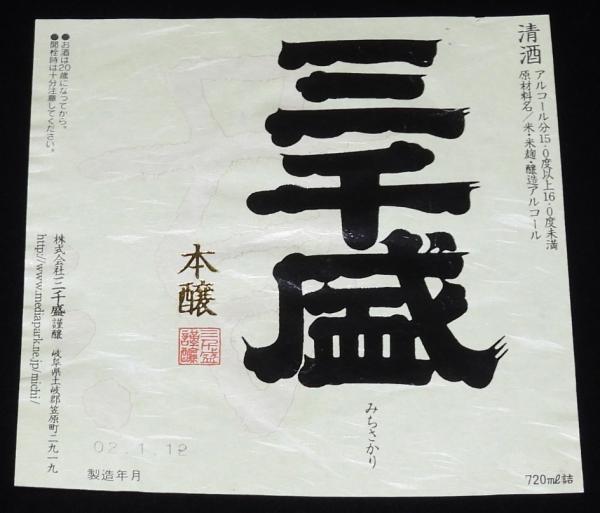 清酒
アルコール分15.0度以上16.0度未満
原材料名/米・米麹・醸造アルコール
三千盛
みちさかり
720ml詰
本醸
三千盛
謹醸
●お酒は20歳になってから。
●開栓時は十分注意してください。
株式会社三千盛謹醸 岐阜県土岐郡笠原町二九一九
http://www.mediapark.ne.jp/michi/
02.1.18
製造年月